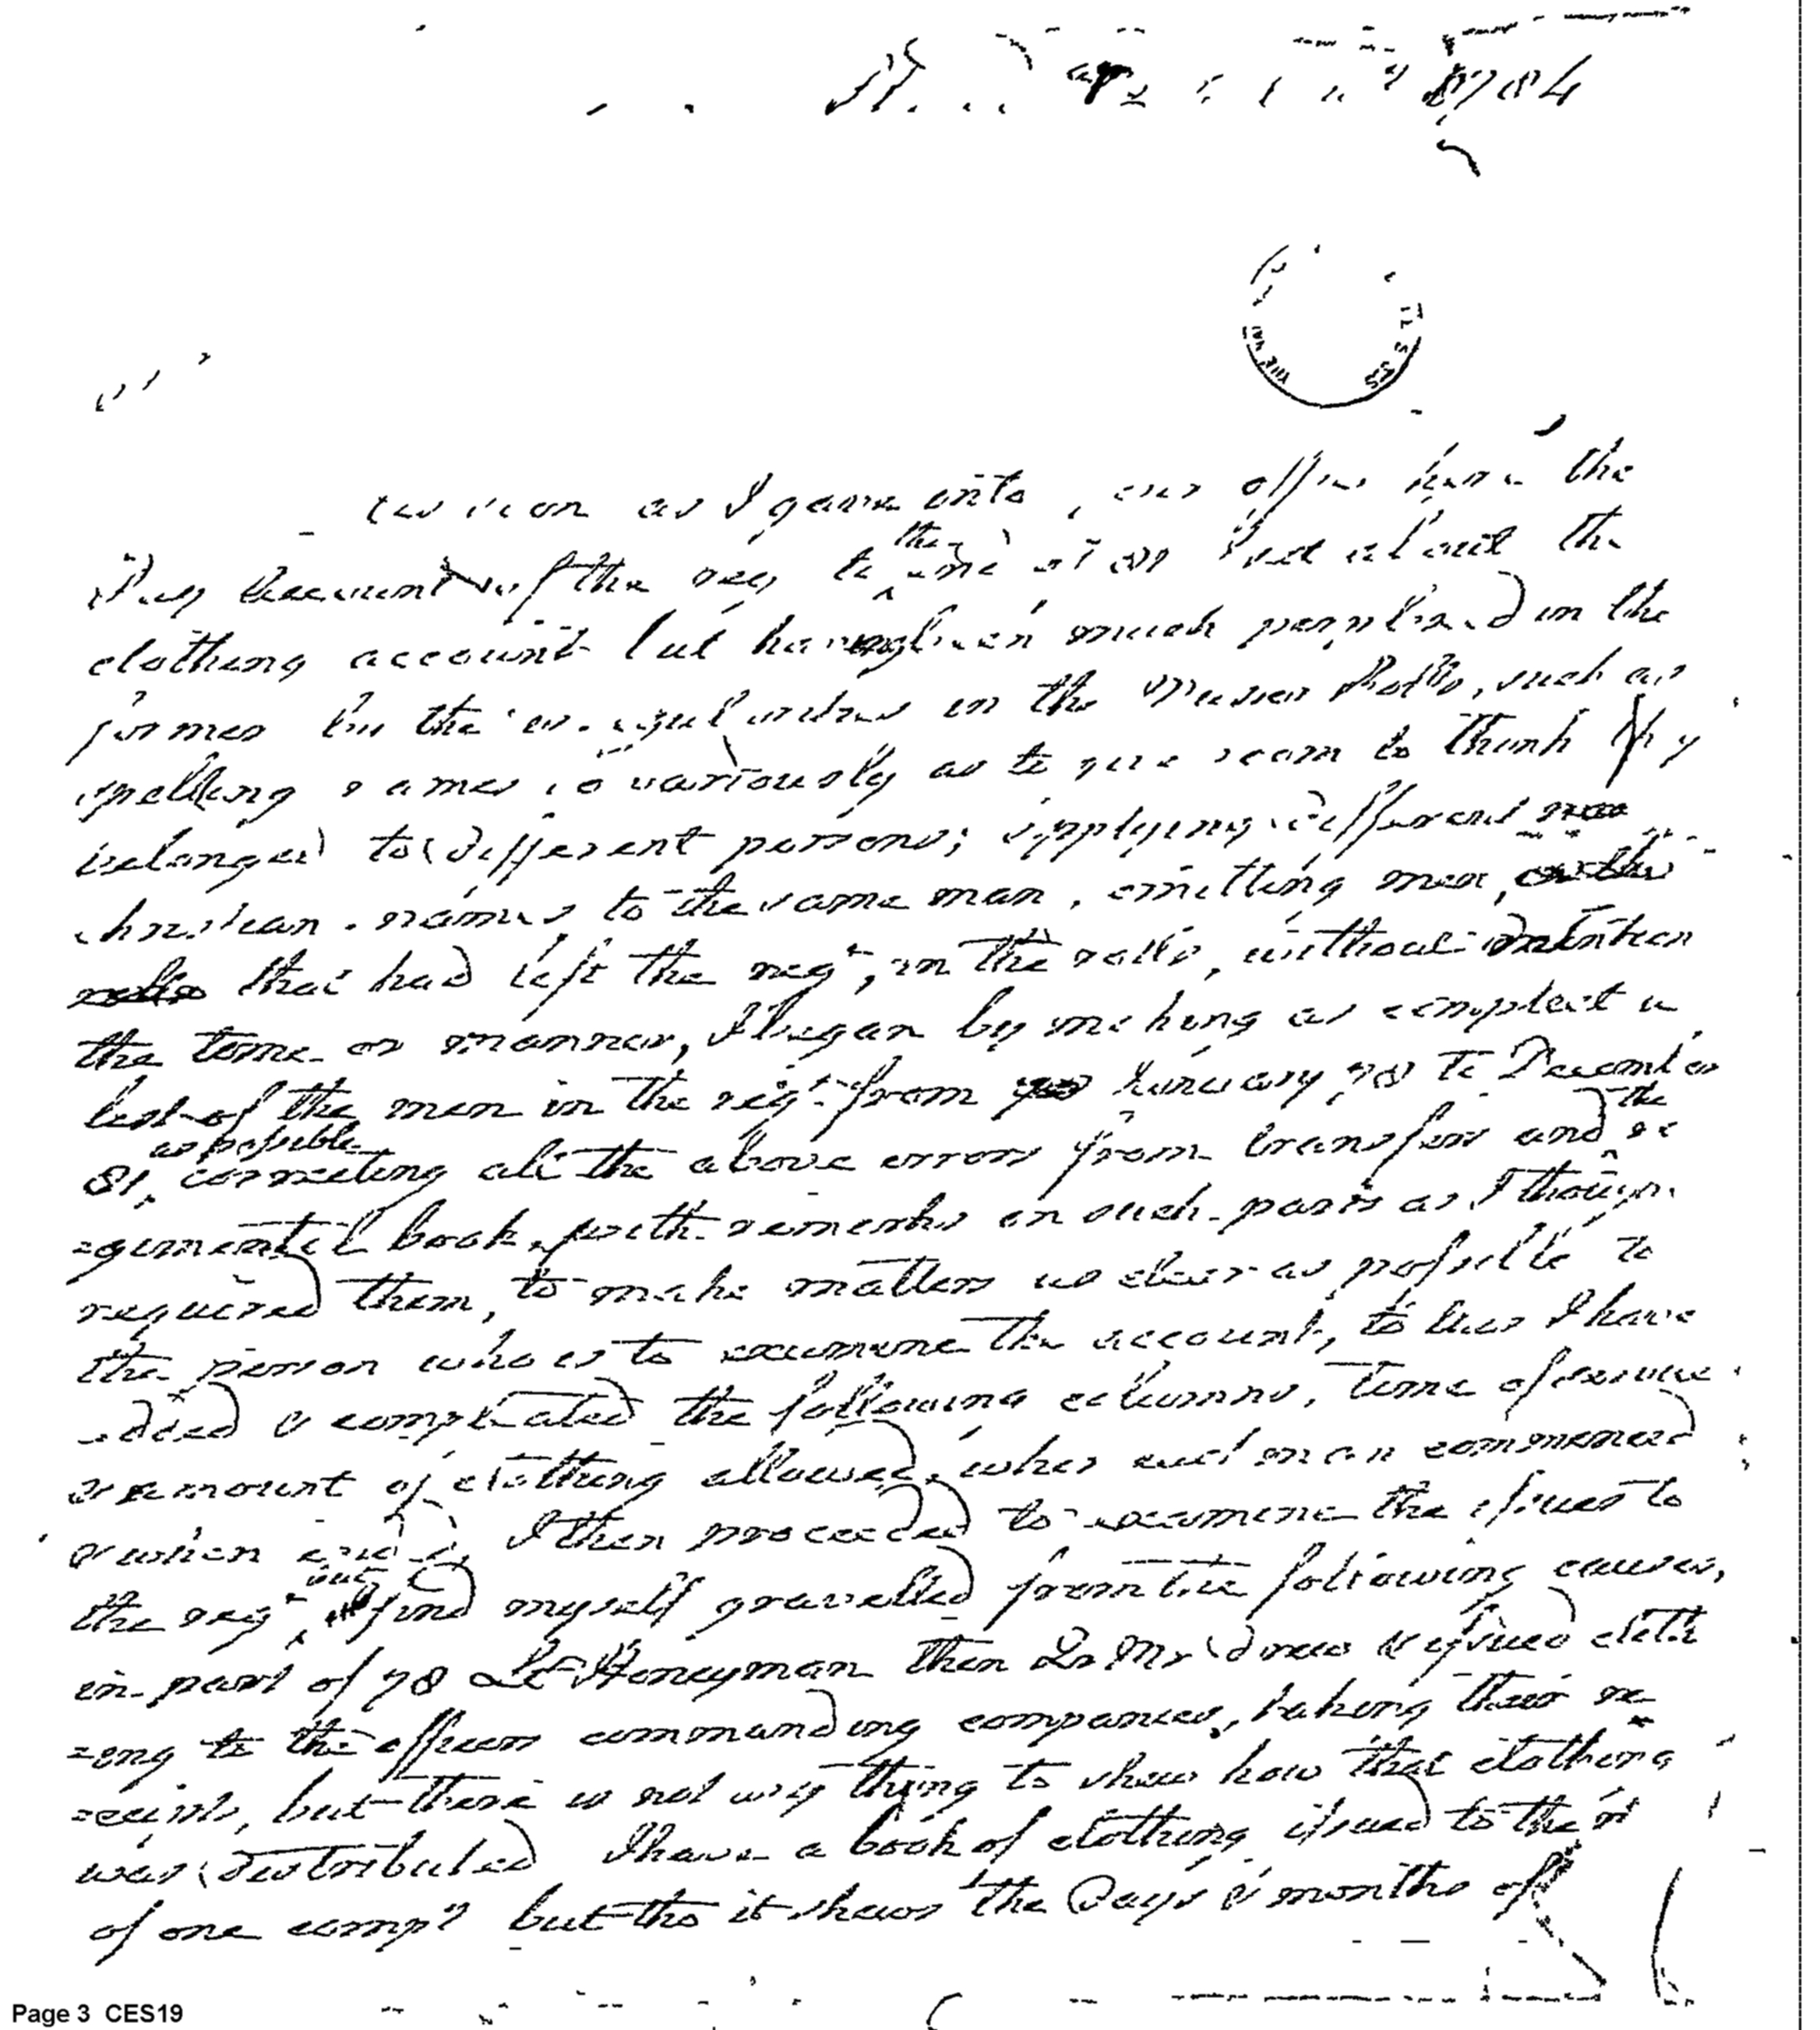 1784
as I gave into the
Pay Account of the reg to the end about the
clothing account but having been much perplexed in the
former by the irregularities in the Muster Rolls, such as
spelling names so variously as to give room to think they
belonged to different persons; applying different
christian names to the same man, omitting men,
that had left the regt, in the rolls, without mention
the time or manner, I began by making as compleat a
list of the men in the regt from January 78 to December
as possible the
81, correcting all the above errors from transfers and re
=gimental book, with remarks on such parts as I thought
required them, to make matters as clear as possible to
the person who is to examine the account, to this I have
added & compleated the following columns, time of service
& amount of clothing allowed, when each man commenced
& when I then proceeded to examine the issues to
the regt, but find myself gravelled from the following causes,
in part of 78 Lt Honeyman then Qr Mr drew & issued cloth
=ing to the officers commanding companies, taking their re
=ceipts, but there is not any thing to shew how that clothing
was distributed I have a book of clothing issued to the
of one compy but tho it shews the Days & months of
Page 3 CES19